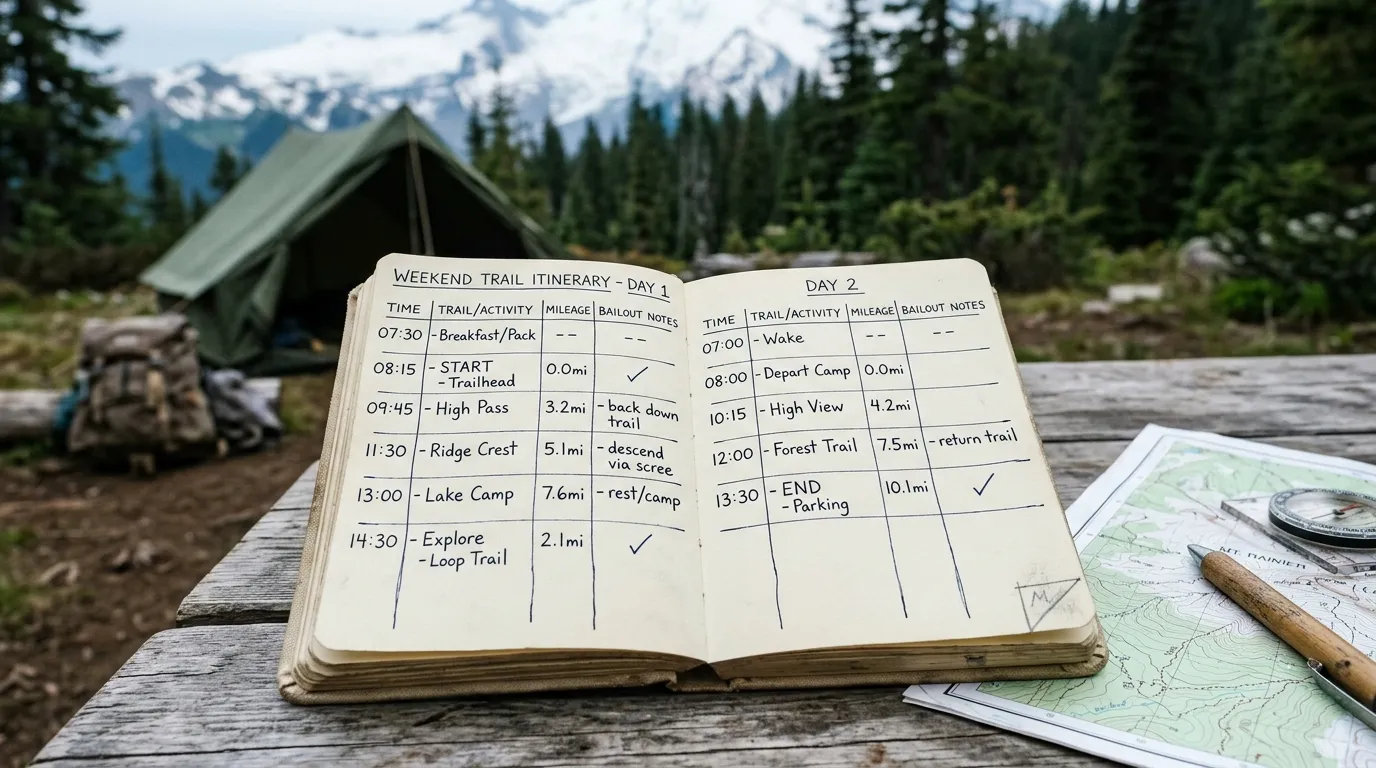 WEEKEND TRAIL ITINERARY - DAY 1
TIME TRAIL/ACTIVITY MILEAGE BAILOUT NOTES
07:30 - Breakfast/Pack -- --
08:15 - START 0.0mi ✓
- Trailhead
09:45 - High Pass 3.2mi - back down
trail
11:30 - Ridge Crest 5.1mi - descend
via scree
13:00 - Lake Camp 7.6mi - rest/camp
14:30 - Explore 2.1mi ✓
- Loop Trail
DAY 2
TIME TRAIL/ACTIVITY MILEAGE BAILOUT NOTES
07:00 - Wake -- --
08:00 - Depart Camp 0.0mi
10:15 - High View 4.2mi
12:00 - Forest Trail 7.5mi - return trail
13:30 - END 10.1mi ✓
- Parking
M
MT. RAINIER